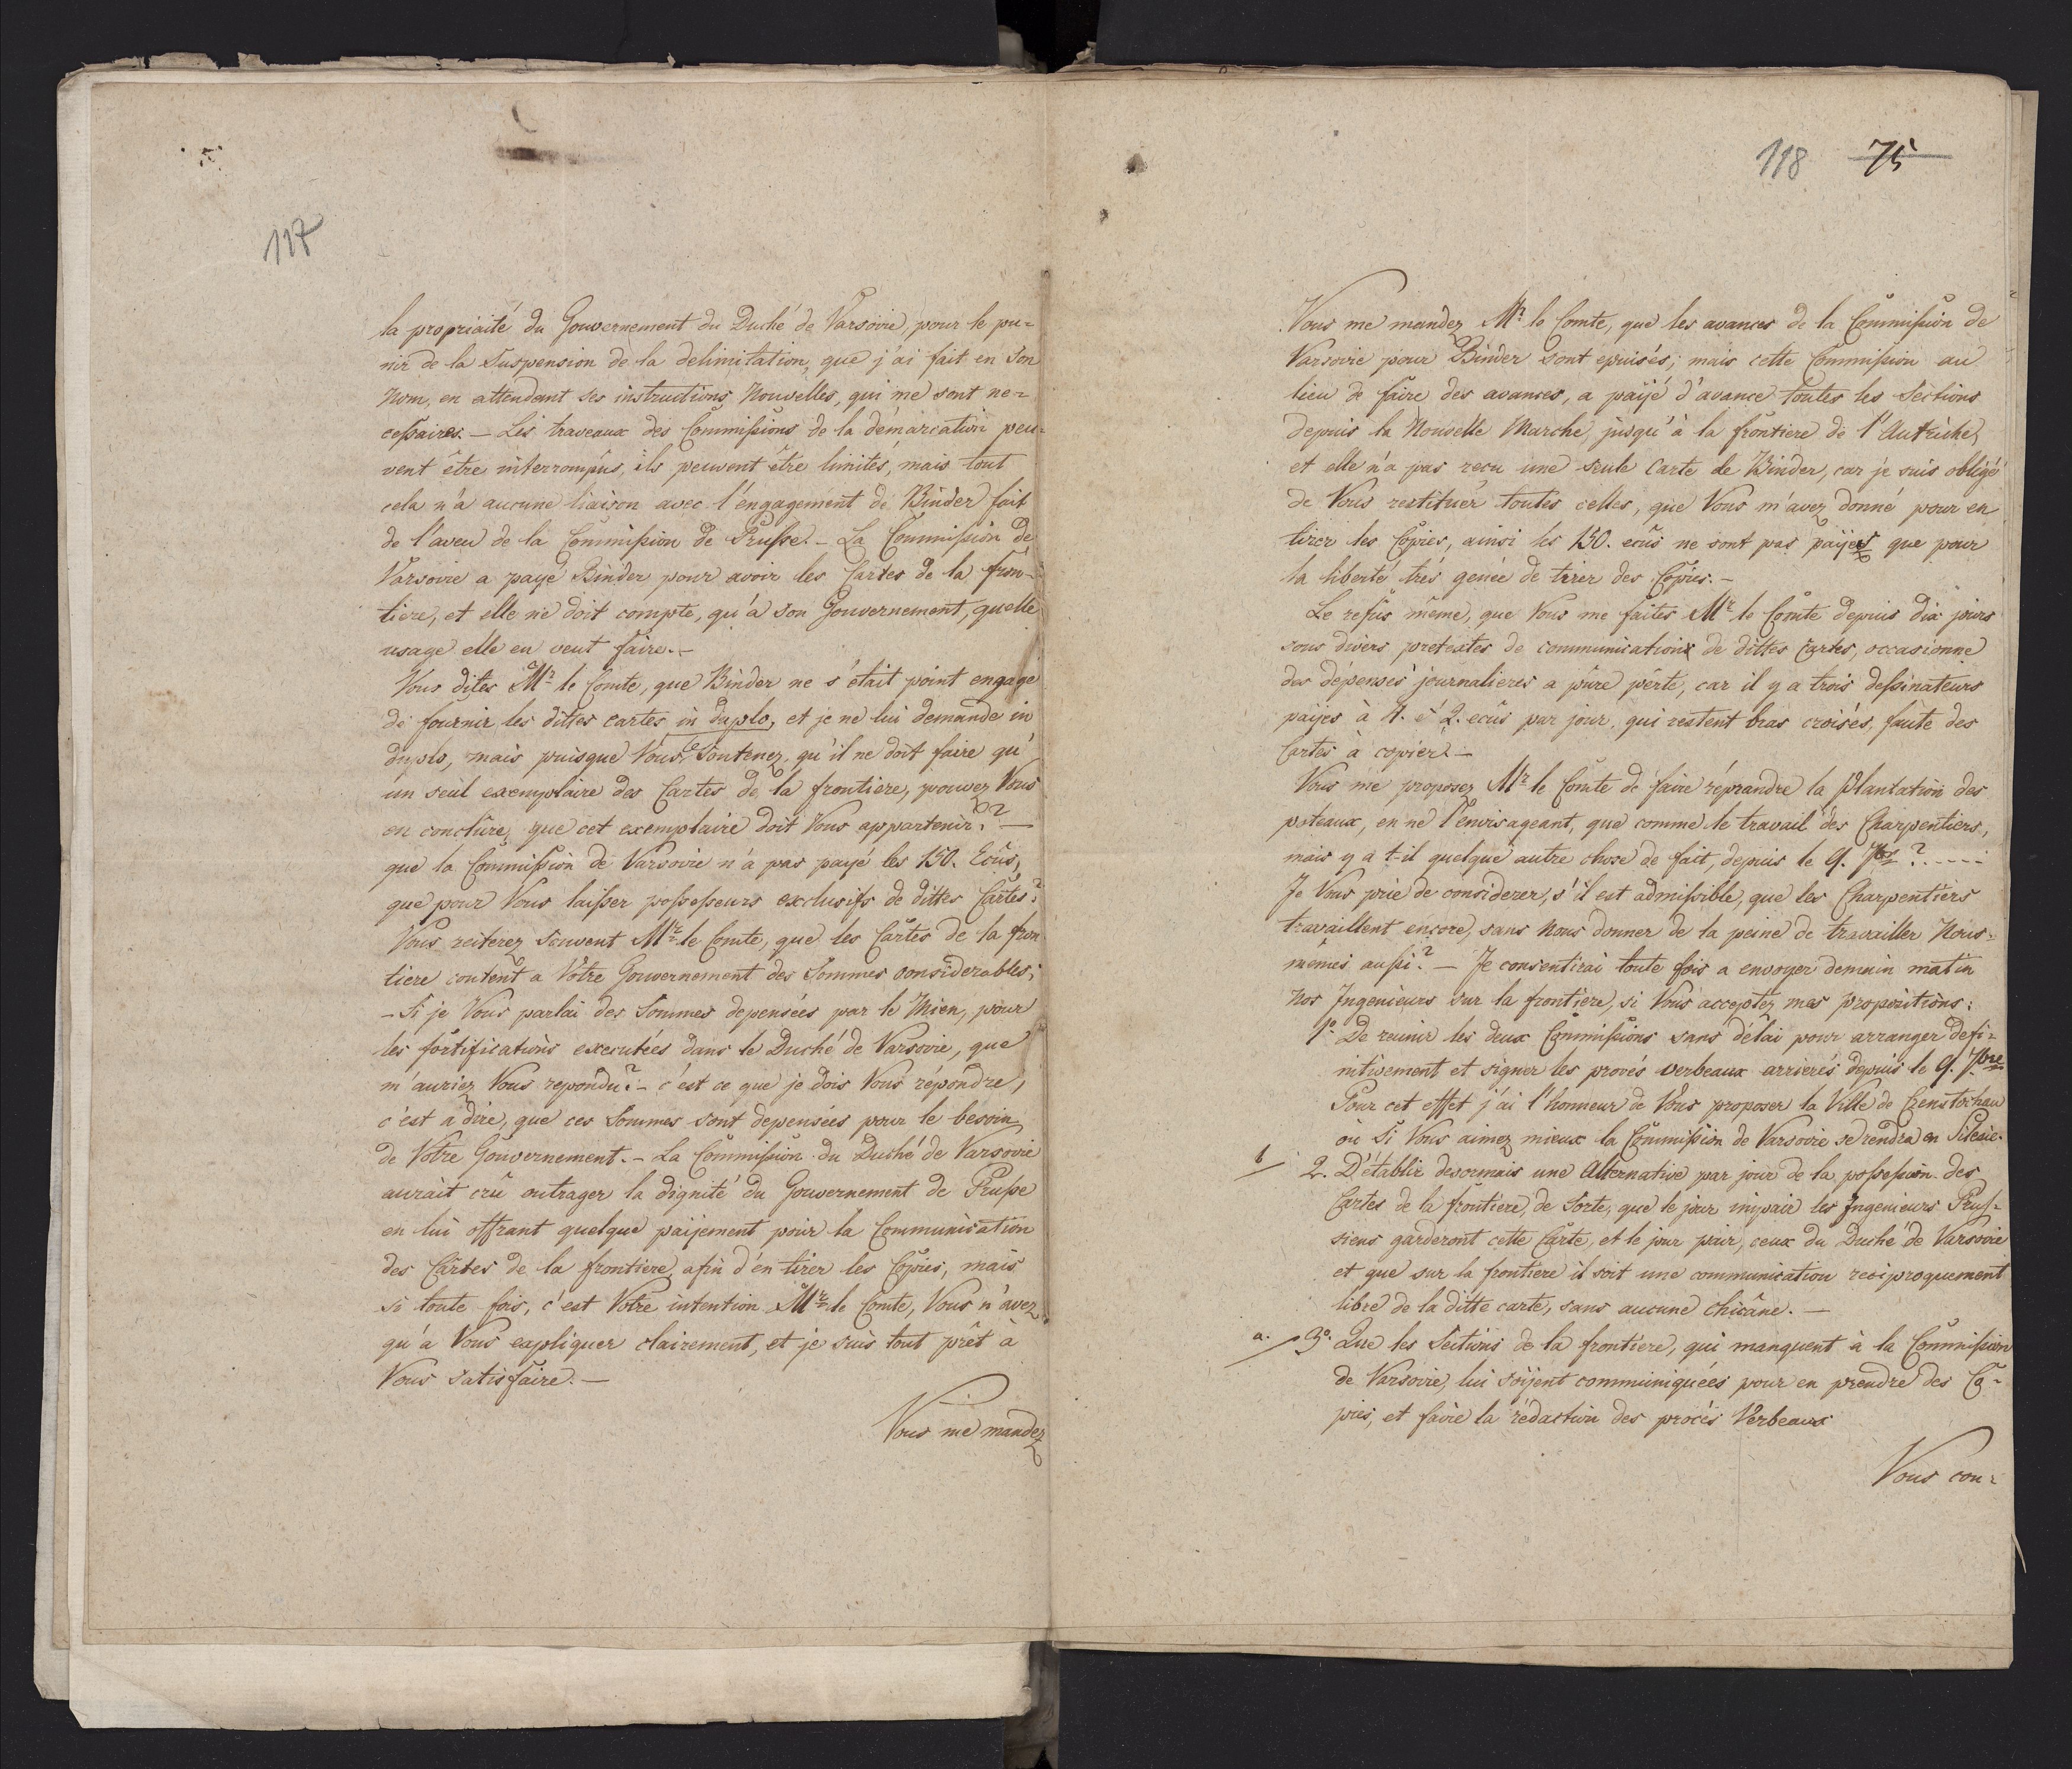 117
la propriaité du Gouvernement du Duché de Varsovie, pour le pu=
nir de la Suspension de la delimitation, que j'ai fait en Son
Nom, en attendant ses instructions Nouvelles, qui me sont ne=
cessaires. — Les traveaux des Commissions de la démarcation peu=
vent être interrompûs, ils peuvent être limités, mais tout
cela n'a aucune liaison avec l'engagement de Binder fait
de l'aveu de la Commission de Prusse. — La Commission de
Varsovie a payé Binder pour avoir les Cartes de la fron=
tiere, et elle ne doit compte, qu'à son Gouvernement, quelle
usage elle en veut faire. —
Vous dites Mr. le Comte, que Binder ne s'était point engagé
de fournir les dittes cartes in duplo, et je ne lui demande in
duplo, mais puisque Vous Soutenez, qu'il ne doit faire qu'
un seul exemplaire des Cartes de la frontiere, pouvez Vous
en conclûre, que cet exemplaire doit Vous appartenir? —
que la Commission de Varsovie n'a pas payé les 150. Ecûs,
que pour Vous laisser possesseurs exclusifs de dittes Cartes?
Vous reiterez souvent Mr. le Comte, que les Cartes de la fron
tiere coutent a Vôtre Gouvernement des Sommes considerables;
— Si je Vous parlai des Sommes depensées par le Mien, pour
les fortifications executées dans le Duché de Varsovie, que
m'auriez Vous repondu? — c'est ce que je dois Vous répondre,
c'est a dire, que ces Sommes sont depensées pour le besoin
de Votre Gouvernement. — La Commission du Duché de Varsovie
aurait crû outrager la dignité du Gouvernement de Prusse
en lui offrant quelque paijement pour la Communication
des Cartes de la frontiere afin d'en tirer les Copies, mais
si toute fois, c'est Votre intention Mr. le Comte, Vous n'avez
qu'a Vous expliquer clairement, et je suis tout prêt à
Vous satisfaire. —
Vous me mandez
118 75
Vous me mandez Mr. le Comte, que les avances de la Commission de
Varsovie pour Binder sont epuisés; mais cette Commission au
lieu de faire des avances, a paijé d'avance toutes les Sections
depuis la Nouvelle Marche, jusqu'à la frontiere de l'Autriche,
et elle n'a pas recu une seule Carte de Binder, car je suis obligé
de Vous restituer toutes celles, que Vous m'avez donné pour en
tirer les Copies, ainsi les 150. ecûs ne sont pas paijes que pour
la liberté trés genée de tirer des Copies. —
Le refus même, que Vous me faites Mr. le Comte depuis dix jours
sous divers pretextes de communication de dittes Cartes, occasionne
des dépenses journalieres a pûre pêrte, car il y a trois dessinateurs
paijes à 4. et 2. ecûs par jour, qui restent bras croisés, faute des
Cartes à copier. —
Vous me proposez Mr. le Comte de faire réprandre la Plantation des
poteaux, en ne l'envisageant, que comme le travail des Charpentiers,
mais y a t-il quelque autre chose de fait, depuis le 9. 7br ? .....
Je Vous prie de considerer, s'il est admissible, que les Charpentiers
travaillent encore, sans Nous donner de la peine de travailler Nous=
mêmes aussi? — Je consentirai toute fois a envoyer demain matin
Nos Ingenieurs sur la frontiere, si Vous acceptez mes propositions:
1o. De reunir les deux Commissions sans délai pour arranger defi=
nitivement et signer les procés verbeaux arrierés depuis le 9. 7bre
Pour cet effet j'ai l'honneur de Vous proposer la Ville de Czenstochau
ou Si Vous aimez mieux la Commission de Varsovie se rendra en Silesie.
b / 2. D'établir desormais une Alternative par jour de la possession des
Cartes de la frontiere, de Sorte, que le jour impair les Ingenieurs Prus=
siens garderont cette Carte, et le jour pair, ceux du Duché de Varsovie
et que sur la frontiere il soit une communication reciproquement
libre de la ditte carte, sans aucune chicâne. —
a. / 3o. Que les Sections de la frontiere, qui manquent à la Commission
de Varsovie, lui soijent communiquées pour en prendre des Co=
pies, et faire la rédaction des procés Verbeaux
Vous con=